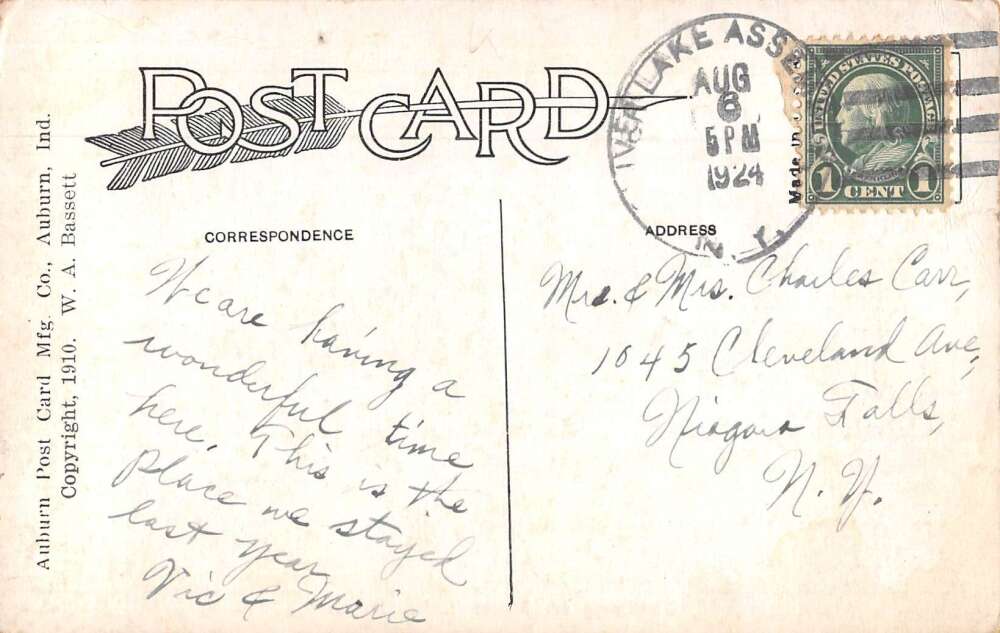 POST CARD
Auburn Post Card Mfg. Co., Auburn, Ind.
Copyright, 1910. W. A. Bassett
CORRESPONDENCE
We are having a
wonderful time
here. This is the
place we stayed
last year
Vic & Marie
LAKE ASSE
AUG
6
5 PM
1924
N. Y.
Made in
UNITED STATES POSTAGE
1 CENT 1
ADDRESS
Mr. & Mrs. Charles Carr,
1045 Cleveland Ave,
Niagara Falls,
N. Y.